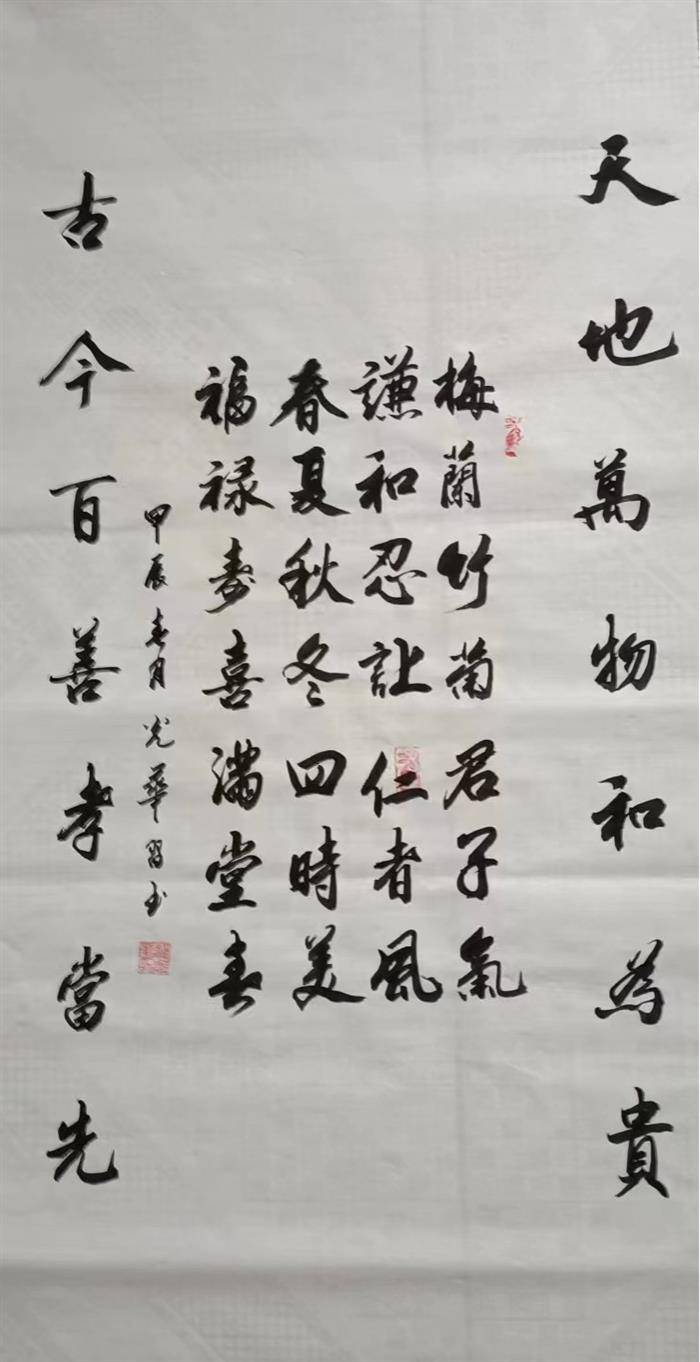 天地萬物和為貴
梅蘭竹菊君子氣
謙和忍让仁者風
春夏秋冬四時美
福禄寿喜满堂春
甲辰春月光華習书
古今百善孝當先